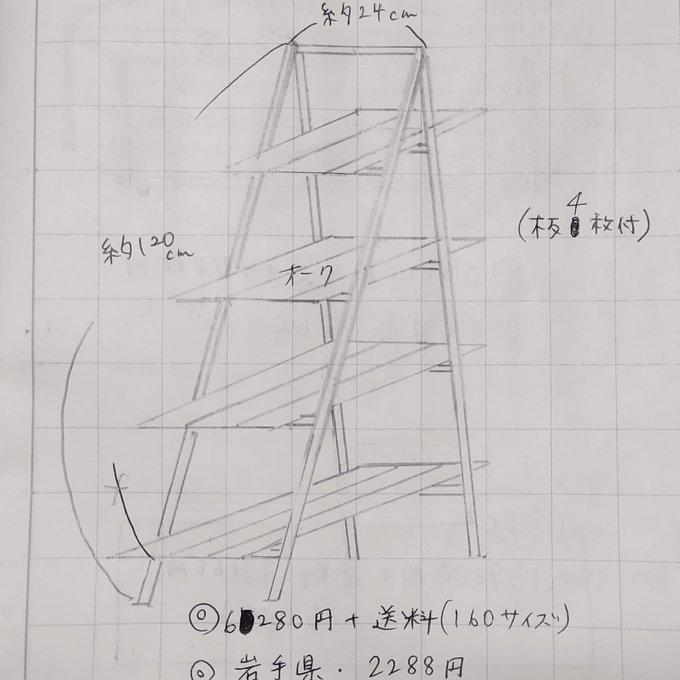 約24cm
(板4枚付)
約120cm
オーク
◎6280円+送料(160サイズ)
◎岩手県・2288円